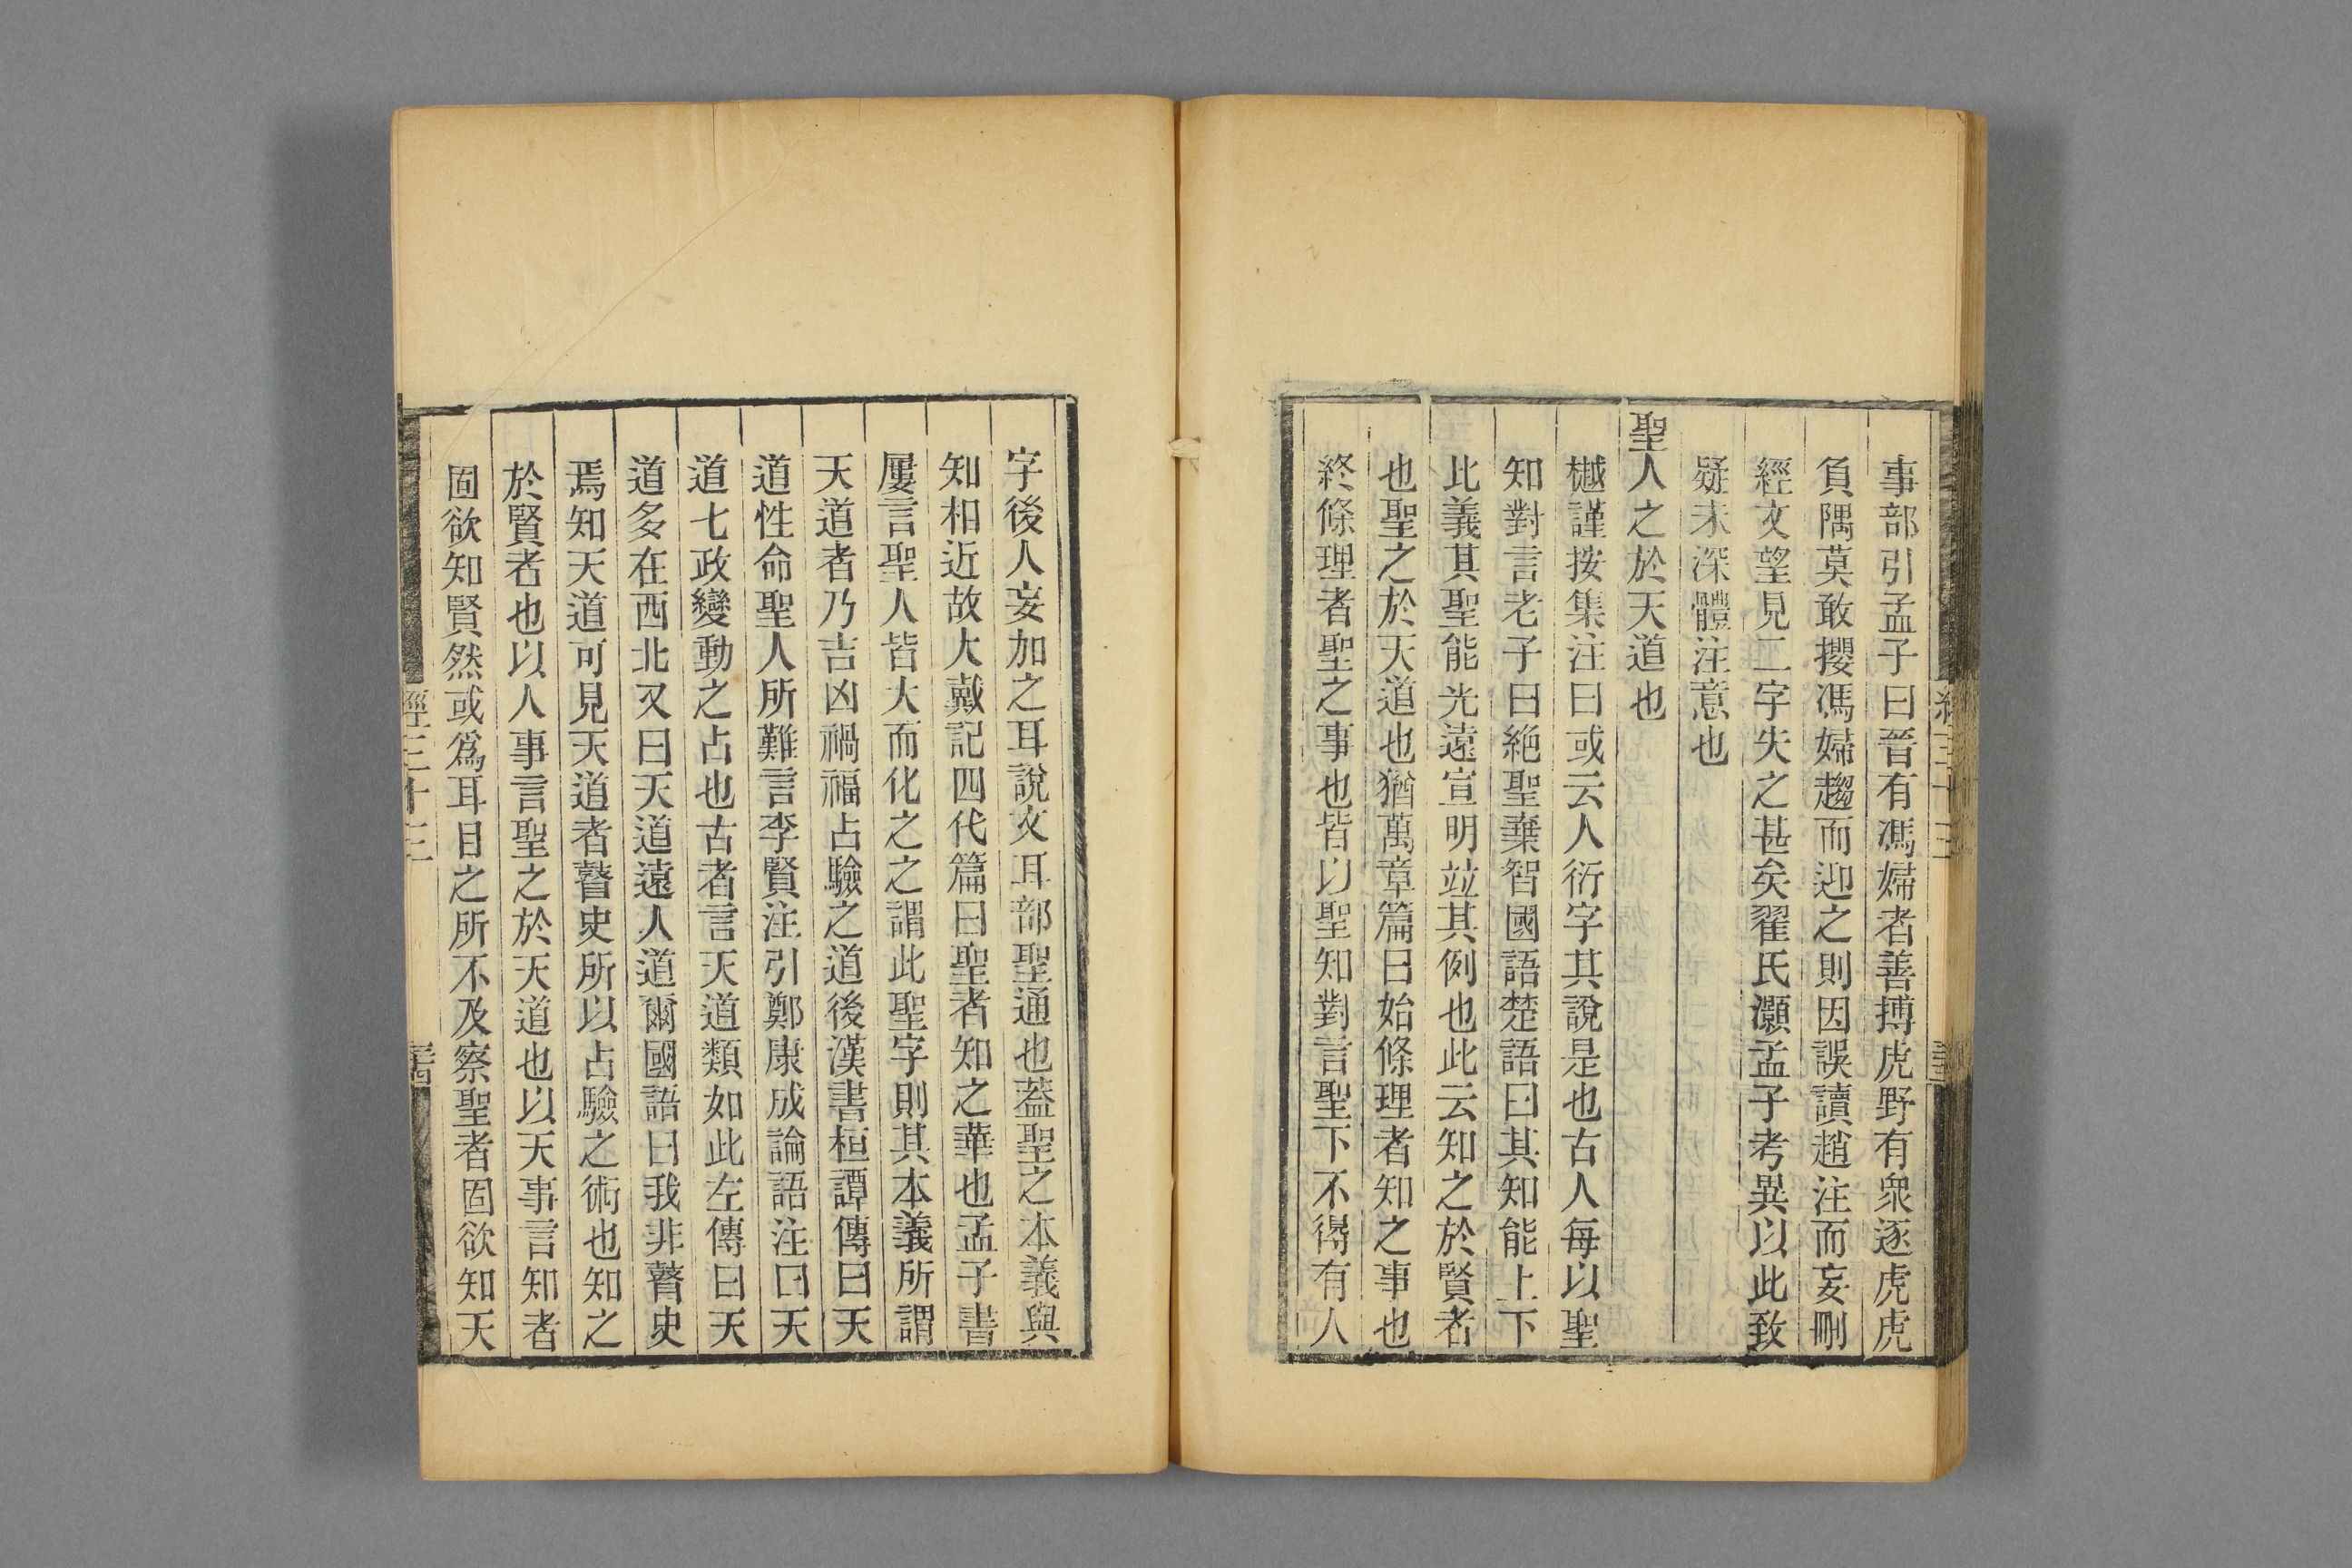 事部引孟子曰晉有馮婦者善搏虎野有衆逐虎虎
負隅莫敢攖馮婦趨而迎之則因誤讀趙注而妄刪
經文望見二字失之甚矣翟氏灝孟子考異以此致
疑未深體注意也
聖人之於天道也
樾謹按集注曰或云人衍字其說是也古人每以聖
知對言老子曰絶聖棄智國語楚語曰其知能上下
比義其聖能光遠宣明竝其例也此云知之於賢者
也聖之於天道也猶萬章篇曰始條理者知之事也
終條理者聖之事也皆以聖知對言聖下不得有人
字後人妄加之耳說文耳部聖通也葢聖之本義與
知相近故大戴記四代篇曰聖者知之華也孟子書
屢言聖人皆大而化之之謂此聖字則其本義所謂
天道者乃吉凶禍福占驗之道後漢書桓譚傳曰天
道性命聖人所難言李賢注引鄭康成論語注曰天
道七政變動之占也古者言天道類如此左傳曰天
道多在西北又曰天道遠人道爾國語曰我非瞽史
焉知天道可見天道者瞽史所以占驗之術也知之
於賢者也以人事言聖之於天道也以天事言知者
固欲知賢然或爲耳目之所不及察聖者固欲知天
經三十三